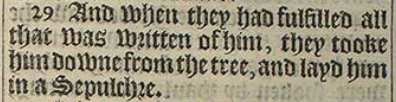 29 And when they had fulfilled all
that was written of him, they tooke
him downe from the tree, and layd him
in a Sepulchre.